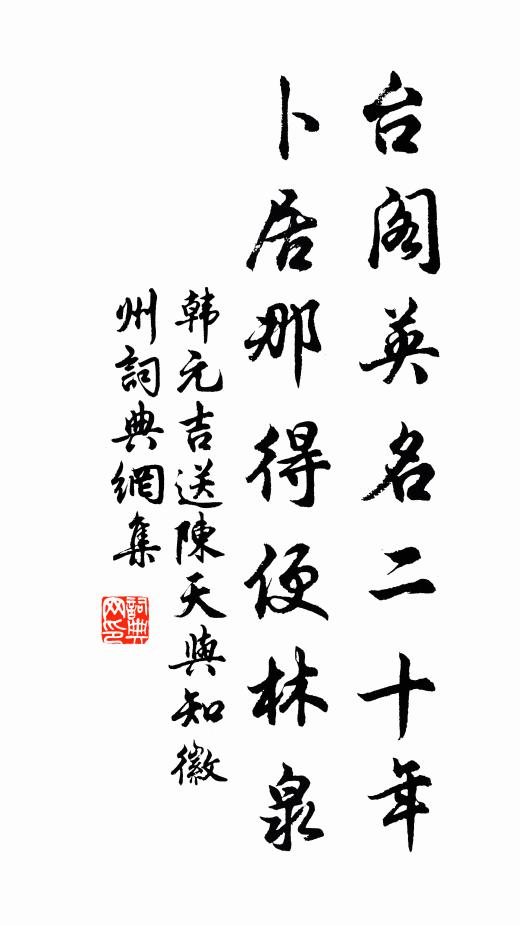 台阁英名二十年
卜居那得便林泉
韩元吉送陳天與知徽
州詞典網集
詞典网印